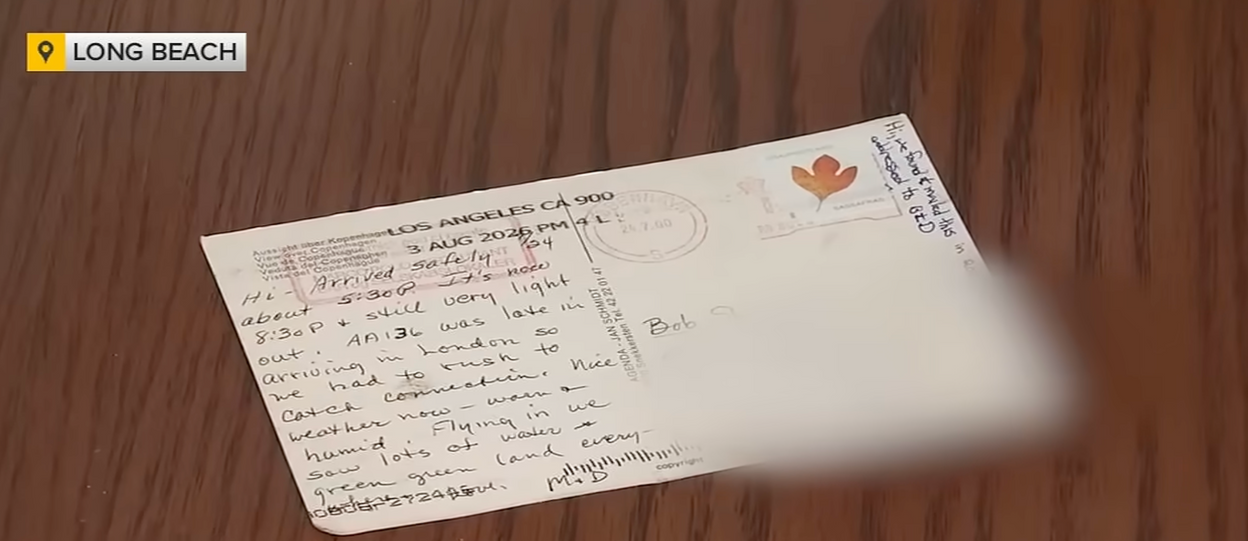 LONG BEACH
LOS ANGELES CA 900
3 AUG 2026 PM 4 L
Aussicht über Kopenhagen
View over Copenhagen
Vue de Copenhague
Veduta del Copenaghen
Vista de Copenhague
7/24
Hi - Arrived safely
about 5:30P. It's now
8:30P & still very light
out. AA136 was late in
arriving in London so
we had to rush to
catch connection. Nice
weather now - warm &
humid. Flying in we
saw lots of water &
green green land every-
M+D
AGENDA - JAN SCHMIDT
copyright
24.7.00
S
SASSAFRAS
Bob
Hi, we found
addressed to